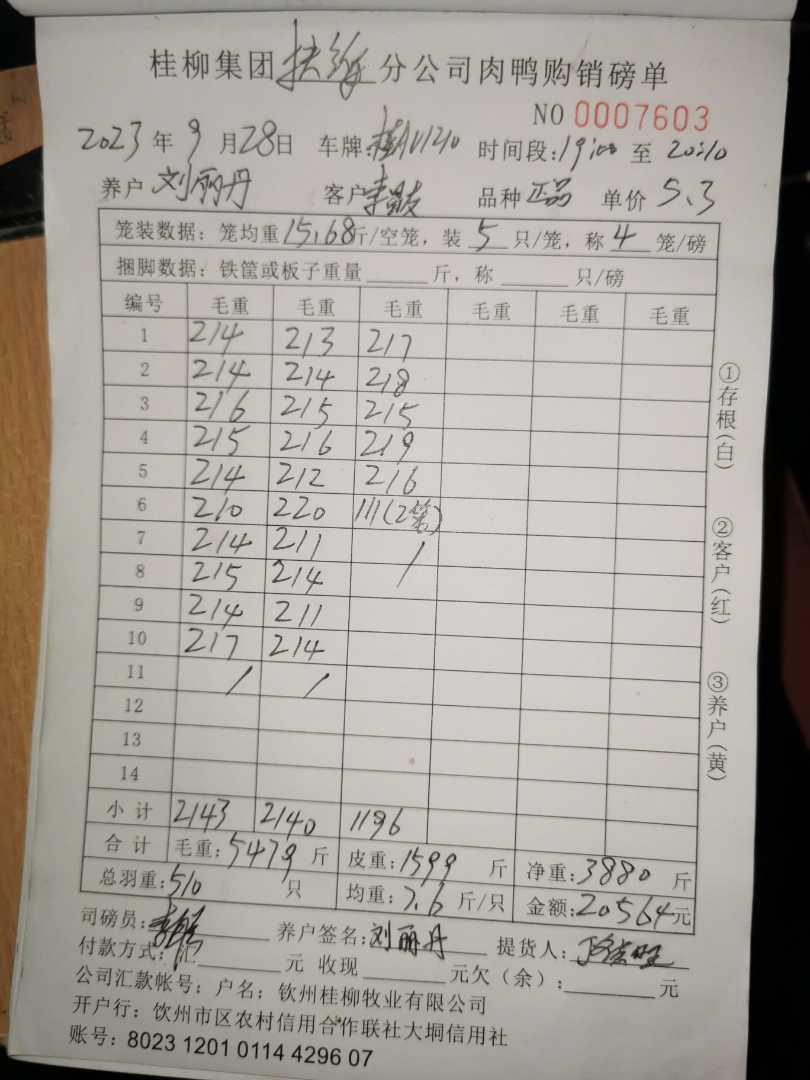 桂柳集团扶绥分公司肉鸭购销磅单
NO 0007603
2023年9月28日 车牌: 时间段:19:00至20:10
养户 刘丽丹 客户 品种 正品 单价 5.3
笼装数据: 笼均重15.68斤/空笼, 装5只/笼, 称4笼/磅
捆脚数据: 铁筐或板子重量____斤, 称____只/磅
编号 毛重 毛重 毛重 毛重 毛重 毛重
1 214 213 217
2 214 214 218
3 216 215 215
4 215 216 219
5 214 212 216
6 210 220 111(2笼)
7 214 211 /
8 215 214
9 214 211
10 217 214
11 / /
12
13
14
小计 2143 2140 1196
合计 毛重:5479斤 皮重:1599斤 净重:3880斤
总羽重:510只 均重:7.6斤/只 金额:20564元
司磅员: 养户签名:刘丽丹 提货人:
付款方式:汇____元 收现____元欠(余):____元
公司汇款帐号: 户名: 钦州桂柳牧业有限公司
开户行: 钦州市区农村信用合作联社大垌信用社
账号: 8023 1201 0114 4296 07
①存根(白)
②客户(红)
③养户(黄)